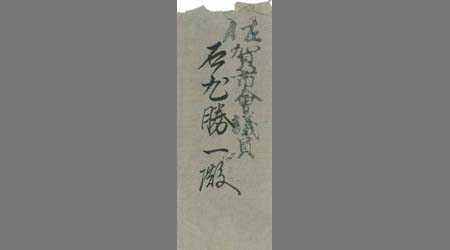 佐賀市會議員
石丸勝一殿